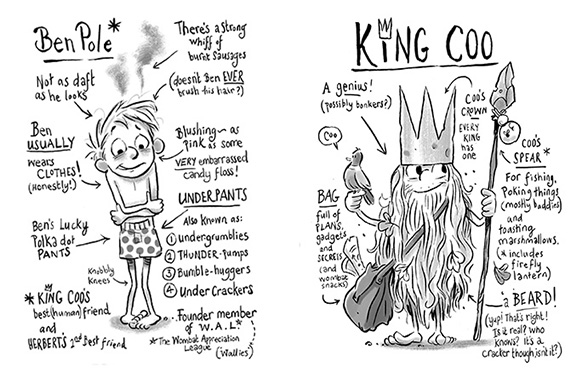 Ben Pole*
There's a strong
whiff of
burnt sausages
Not as daft
as he looks
(doesn't Ben EVER
brush his hair?)
Ben
USUALLY
wears
CLOTHES!
(Honestly!)
Blushing ~ as
pink as some
VERY embarrassed
candy floss!
UNDERPANTS
Also known as:
① undergrumblies
② THUNDER-pumps
③ Bumble-huggers
④ UnderCrackers
Ben's Lucky
Polka dot
PANTS
Knobbly
Knees
* KING COO'S
best(human) friend
and
HERBERT'S 2nd Best friend
Founder member
of W.A.L*
* The Wombat Appreciation
League
(Wallies)
KING COO
A genius!
(possibly bonkers?)
COO
COO'S
CROWN
EVERY
KING
has
one
COO'S
SPEAR*
For fishing,
Poking things
(mostly baddies)
and
toasting
marshmallows.
(* includes
firefly
lantern)
BAG
full of
PLANS,
gadgets
and
SECRETS
(and
wombat
snacks)
a BEARD!
(yup! That's right!
Is it real? who
knows? It's a
cracker though isn't it?)